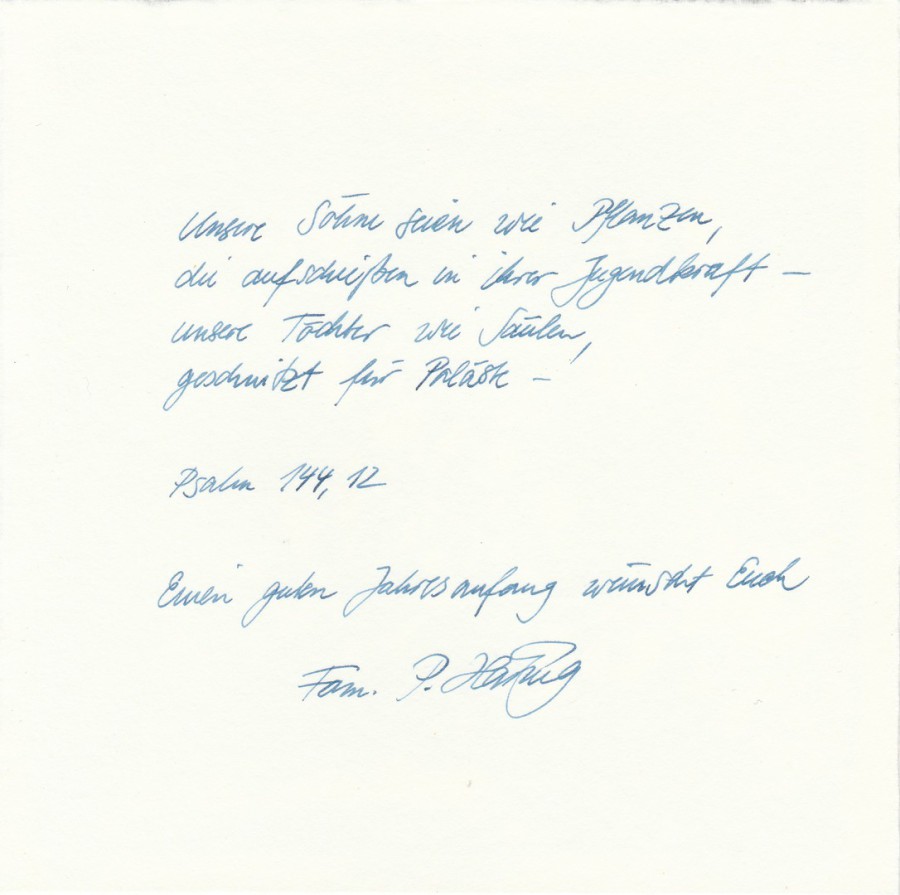 Unsere Söhne seien wie Pflanzen,
die aufschießen in ihrer Jugendkraft –
unsere Töchter wie Säulen,
geschnitzt für Paläste –
Psalm 144, 12
Einen guten Jahresanfang wünscht Euch
Fam. P.